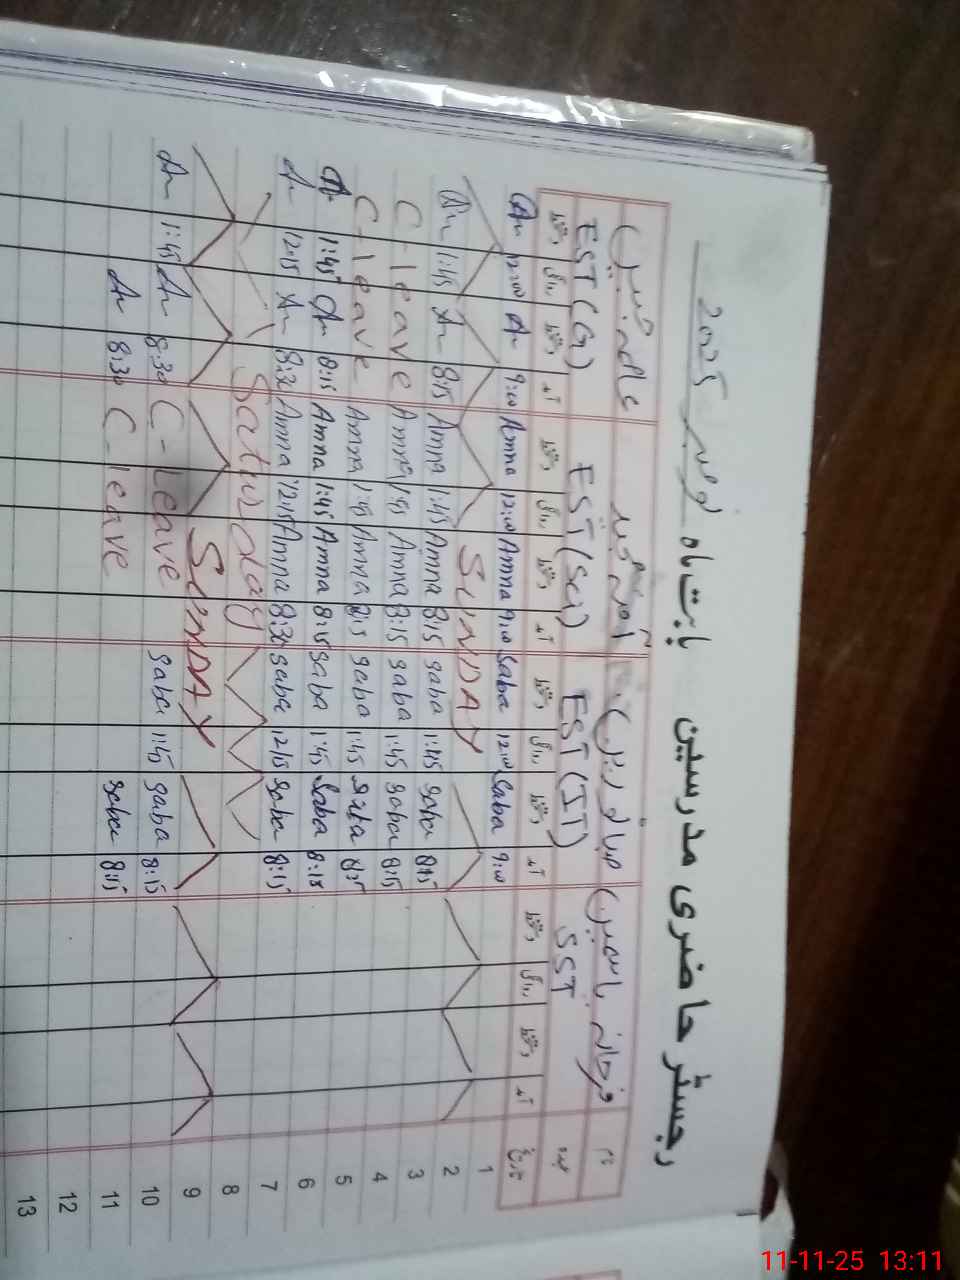 رجسٹر حاضری مدرسین بابت ماہ نومبر 2025
نام فرحانہ یاسمین صباء آمنہ
عہدہ SST EST(IT) EST(Sci) EST(G)
تاریخ آمد دستخط روانگی دستخط آمد دستخط روانگی دستخط آمد دستخط روانگی دستخط آمد دستخط روانگی دستخط
1 9:00 Saba 12:00 Saba 9:00 Amna 12:00 Amna 9:00 An 12:00 An
2 SUNDAY
3 8:15 Saba 1:45 Saba 8:15 Amna 1:45 Amna 8:15 An 1:45 An
4 8:15 Saba 1:45 Saba 8:15 Amna 1:45 Amna C-leave
5 8:15 Saba 1:45 Saba 8:15 Amna 1:45 Amna C-leave
6 8:15 Saba 1:45 Saba 8:15 Amna 1:45 Amna 8:15 An 1:45 An
7 8:15 Saba 12:15 Saba 8:30 Amna 12:15 Amna 8:30 An 12:15 An
8 Saturday
9 SUNDAY
10 8:15 Saba 1:45 Saba C-Leave 8:30 An 1:45 An
11 8:15 Saba C-leave 8:30 An
12
13
11-11-25 13:11